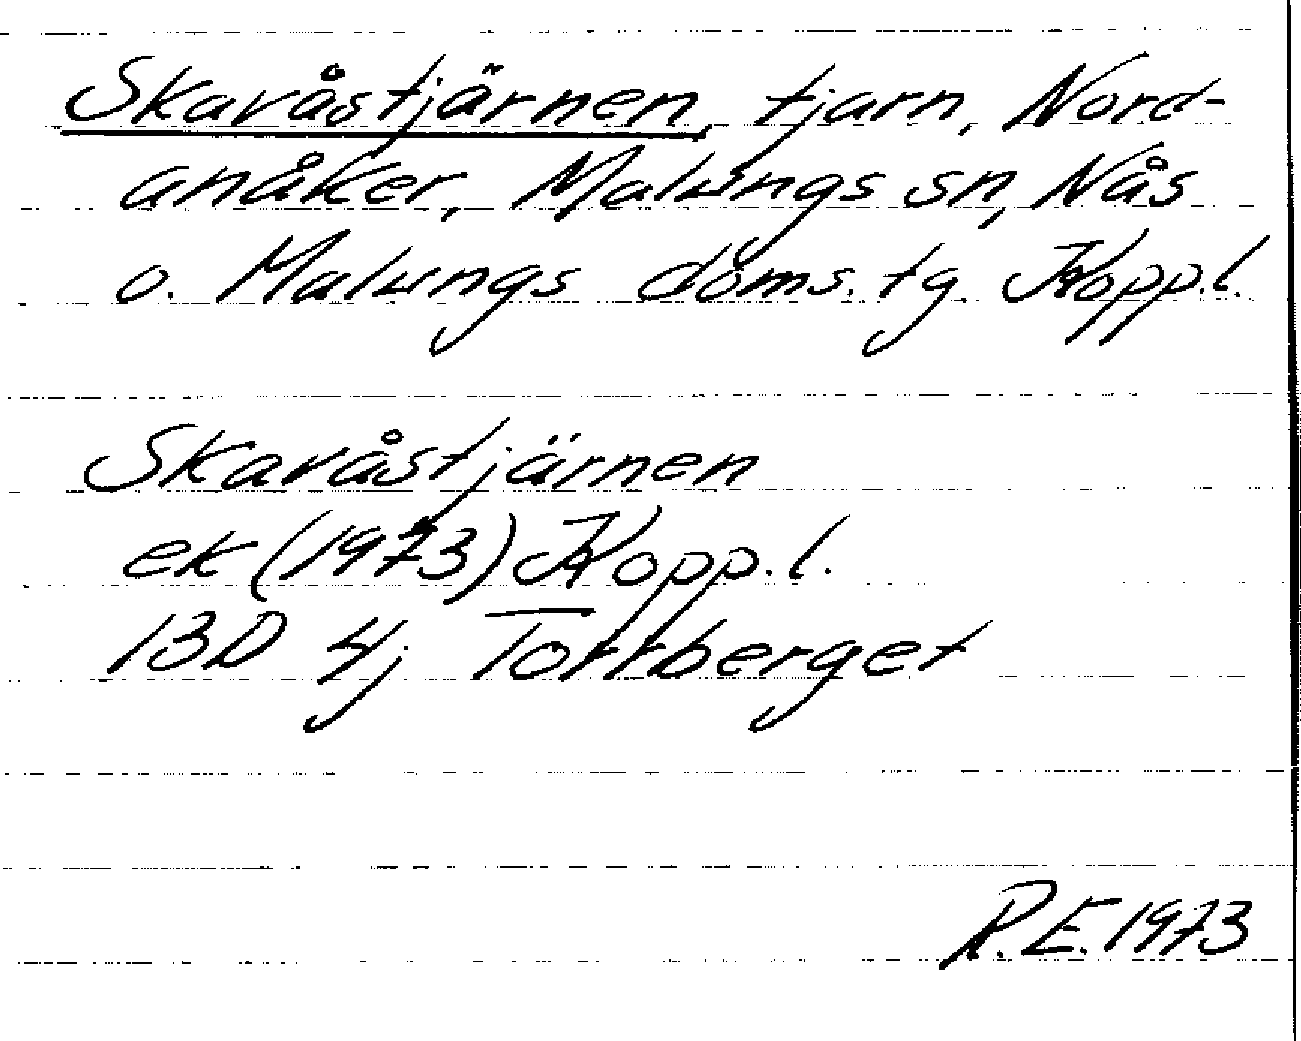 Skavåstjärnen, tjarn, Nord-
anåker, Malungs sn, Nås
o. Malungs doms. tg Kopp.l.
Skavåstjärnen
ek (1973) Kopp.l.
13D 4j Torrberget
R.E. 1973